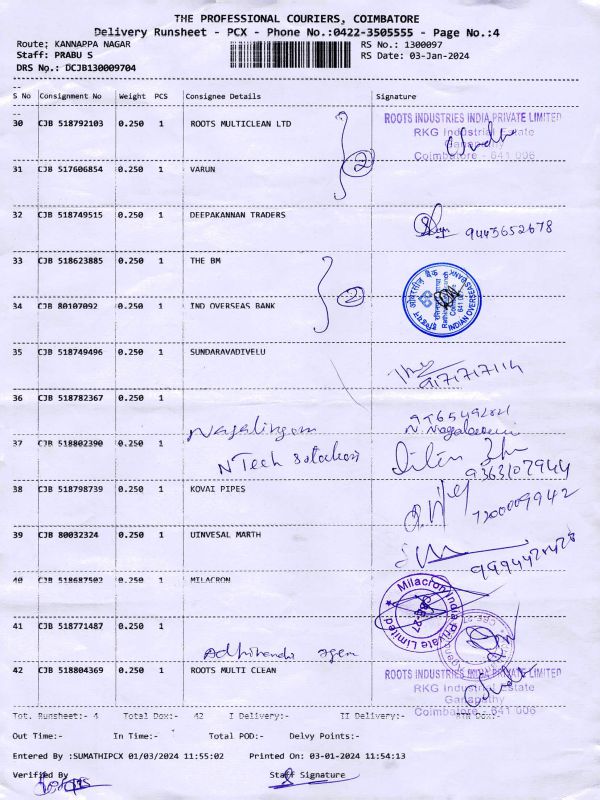 THE PROFESSIONAL COURIERS, COIMBATORE
Delivery Runsheet - PCX - Phone No.:0422-3505555 - Page No.:4
Route; KANNAPPA NAGAR RS No.: 1300097
Staff: PRABU S RS Date: 03-Jan-2024
DRS No.: DCJB130009704
S No Consignment No Weight PCS Consignee Details Signature
30 CJB 518792103 0.250 1 ROOTS MULTICLEAN LTD ROOTS INDUSTRIES INDIA PRIVATE LIMITED
RKG Industrial Estate
Ganapathy
Coimbatore - 641 006
2
31 CJB 517606854 0.250 1 VARUN
32 CJB 518749515 0.250 1 DEEPAKANNAN TRADERS 9443652678
33 CJB 518623885 0.250 1 THE BM
2
34 CJB 80107092 0.250 1 IND OVERSEAS BANK INDIAN OVERSEAS BANK
35 CJB 518749496 0.250 1 SUNDARAVADIVELU
36 CJB 518782367 0.250 1
Nagalingam
37 CJB 518802390 0.250 1 N Tech
9363107944
38 CJB 518798739 0.250 1 KOVAI PIPES 7200009942
39 CJB 80032324 0.250 1 UINVESAL MARTH
40 CJB 518687502 0.250 1 MILACRON Milacron India Private Limited
CBE-27
41 CJB 518771487 0.250 1
42 CJB 518804369 0.250 1 ROOTS MULTI CLEAN ROOTS INDUSTRIES INDIA PRIVATE LIMITED
RKG Industrial Estate
Ganapathy
Coimbatore - 641 006
Tot. Runsheet:- 4 Total Dox:- 42 I Delivery:- II Delivery:- RTN Dox:-
Out Time:- In Time:- Total POD:- Delvy Points:-
Entered By :SUMATHIPCX 01/03/2024 11:55:02 Printed On: 03-01-2024 11:54:13
Verified By Staff Signature